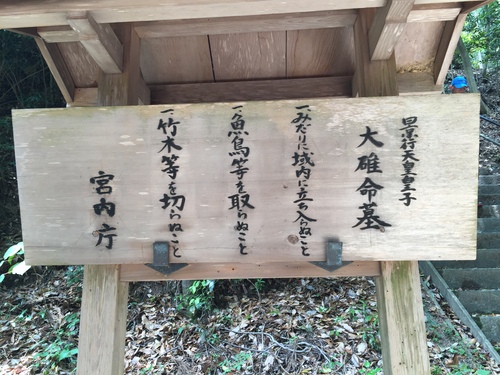 景行天皇皇子
大碓命墓
一、みだりに域内に立ち入らぬこと
一、魚鳥等を取らぬこと
一、竹木等を切らぬこと
宮内庁